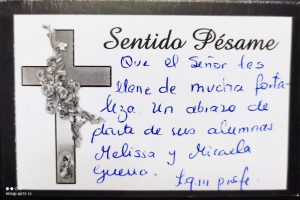 Sentido Pésame
Que el Señor les
llene de mucha forta-
leza. Un abrazo de
parte de sus alumnas
Melissa y Micaela
Guerra. Tqm profe.